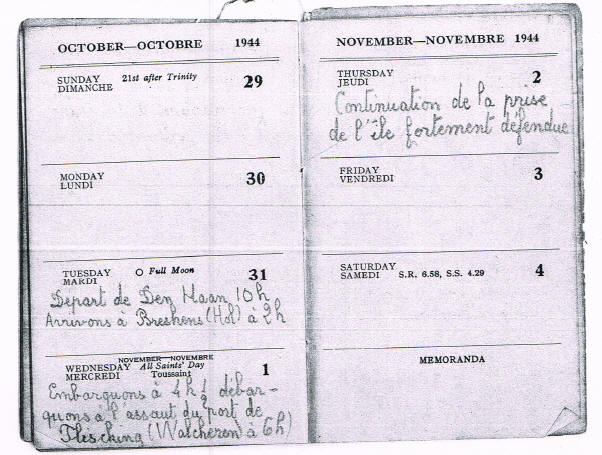 OCTOBER—OCTOBRE 1944
SUNDAY 21st after Trinity 29
DIMANCHE
MONDAY 30
LUNDI
TUESDAY O Full Moon 31
MARDI
Départ de Den Haan 10h
Arrivons à Breskens (Hol) à 2h
NOVEMBER—NOVEMBRE
WEDNESDAY All Saints' Day 1
MERCREDI Toussaint
Embarquons à 4h ½ débar-
quons à l'assaut du port de
Flisching (Walcheren) à 6h)
NOVEMBER—NOVEMBRE 1944
THURSDAY 2
JEUDI
Continuation de la prise
de l'île fortement défendue
FRIDAY 3
VENDREDI
SATURDAY 4
SAMEDI S.R. 6.58, S.S. 4.29
MEMORANDA